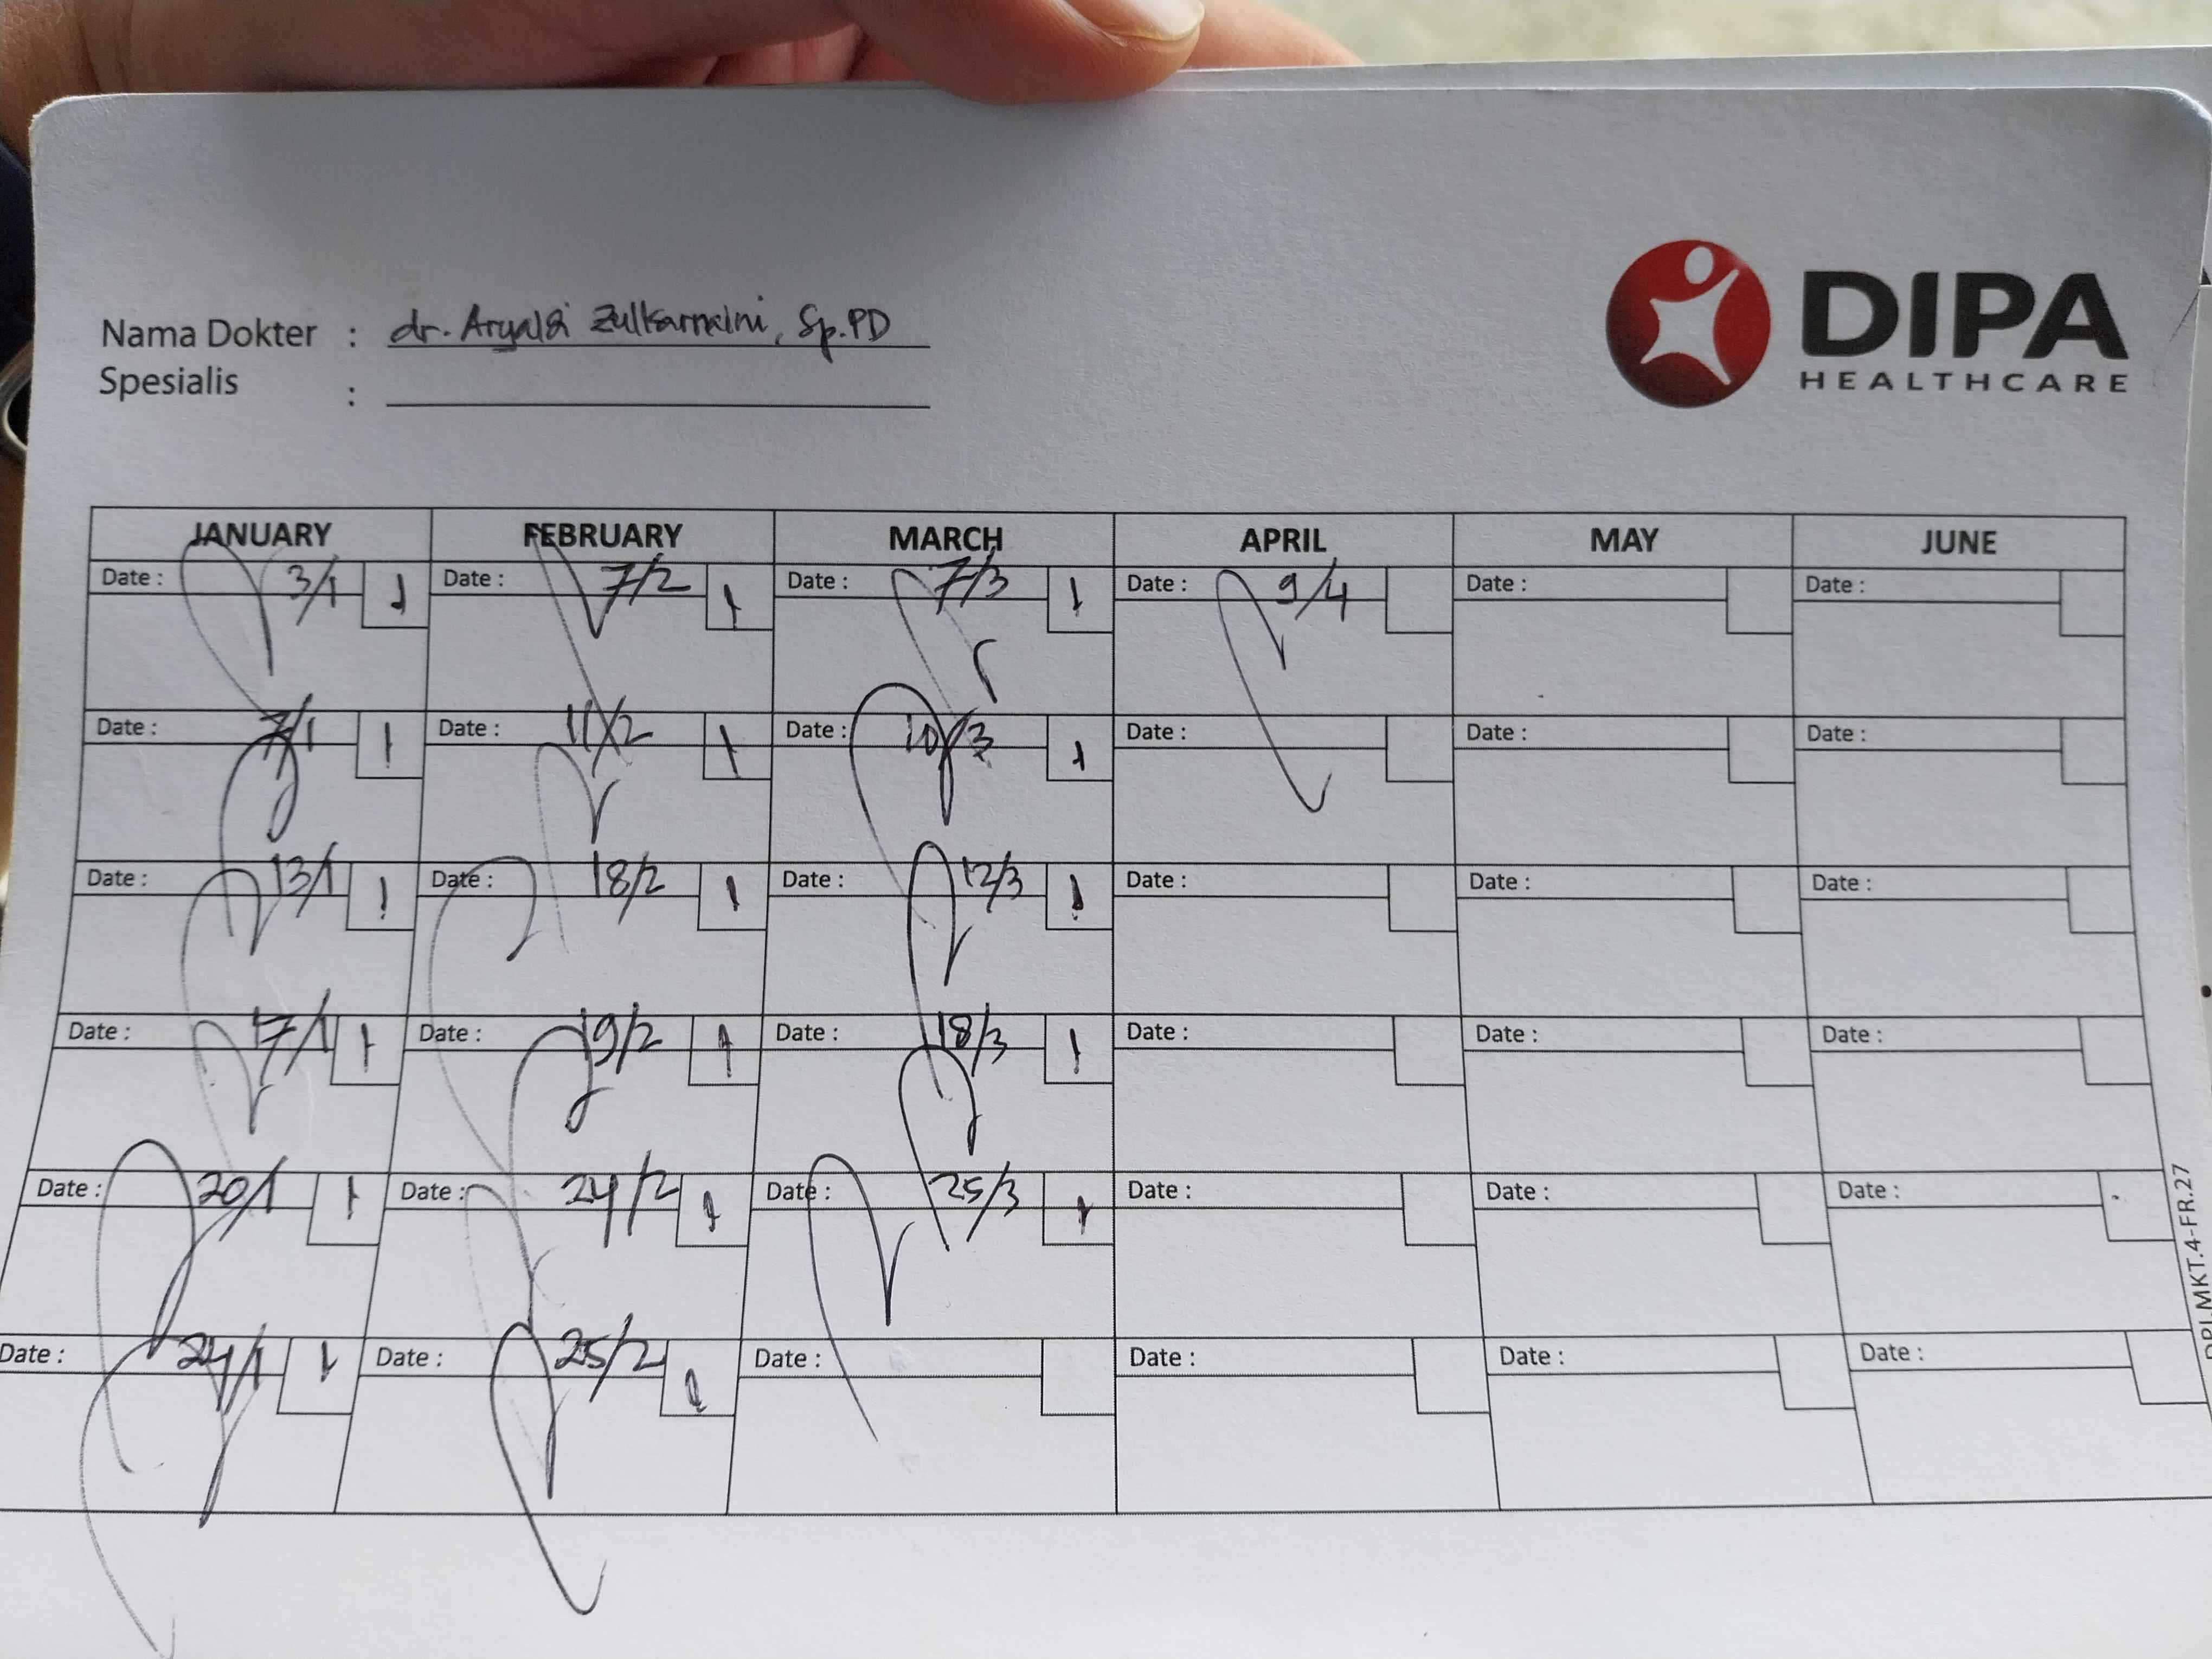 DIPA
HEALTHCARE
Nama Dokter : dr. Aryaldi Zulkarnaini, Sp.PD
Spesialis :
JANUARY FEBRUARY MARCH APRIL MAY JUNE
Date : 3/1 1 Date : 7/2 1 Date : 7/3 1 Date : 9/4 Date : Date :
Date : 7/1 1 Date : 11/2 1 Date : 10/3 1 Date : Date : Date :
Date : 13/1 1 Date : 18/2 1 Date : 12/3 1 Date : Date : Date :
Date : 17/1 1 Date : 19/2 1 Date : 18/3 1 Date : Date : Date :
Date : 20/1 1 Date : 24/2 1 Date : 25/3 1 Date : Date : Date :
Date : 24/1 1 Date : 25/2 1 Date : Date : Date : Date :
MKT.4-FR.27